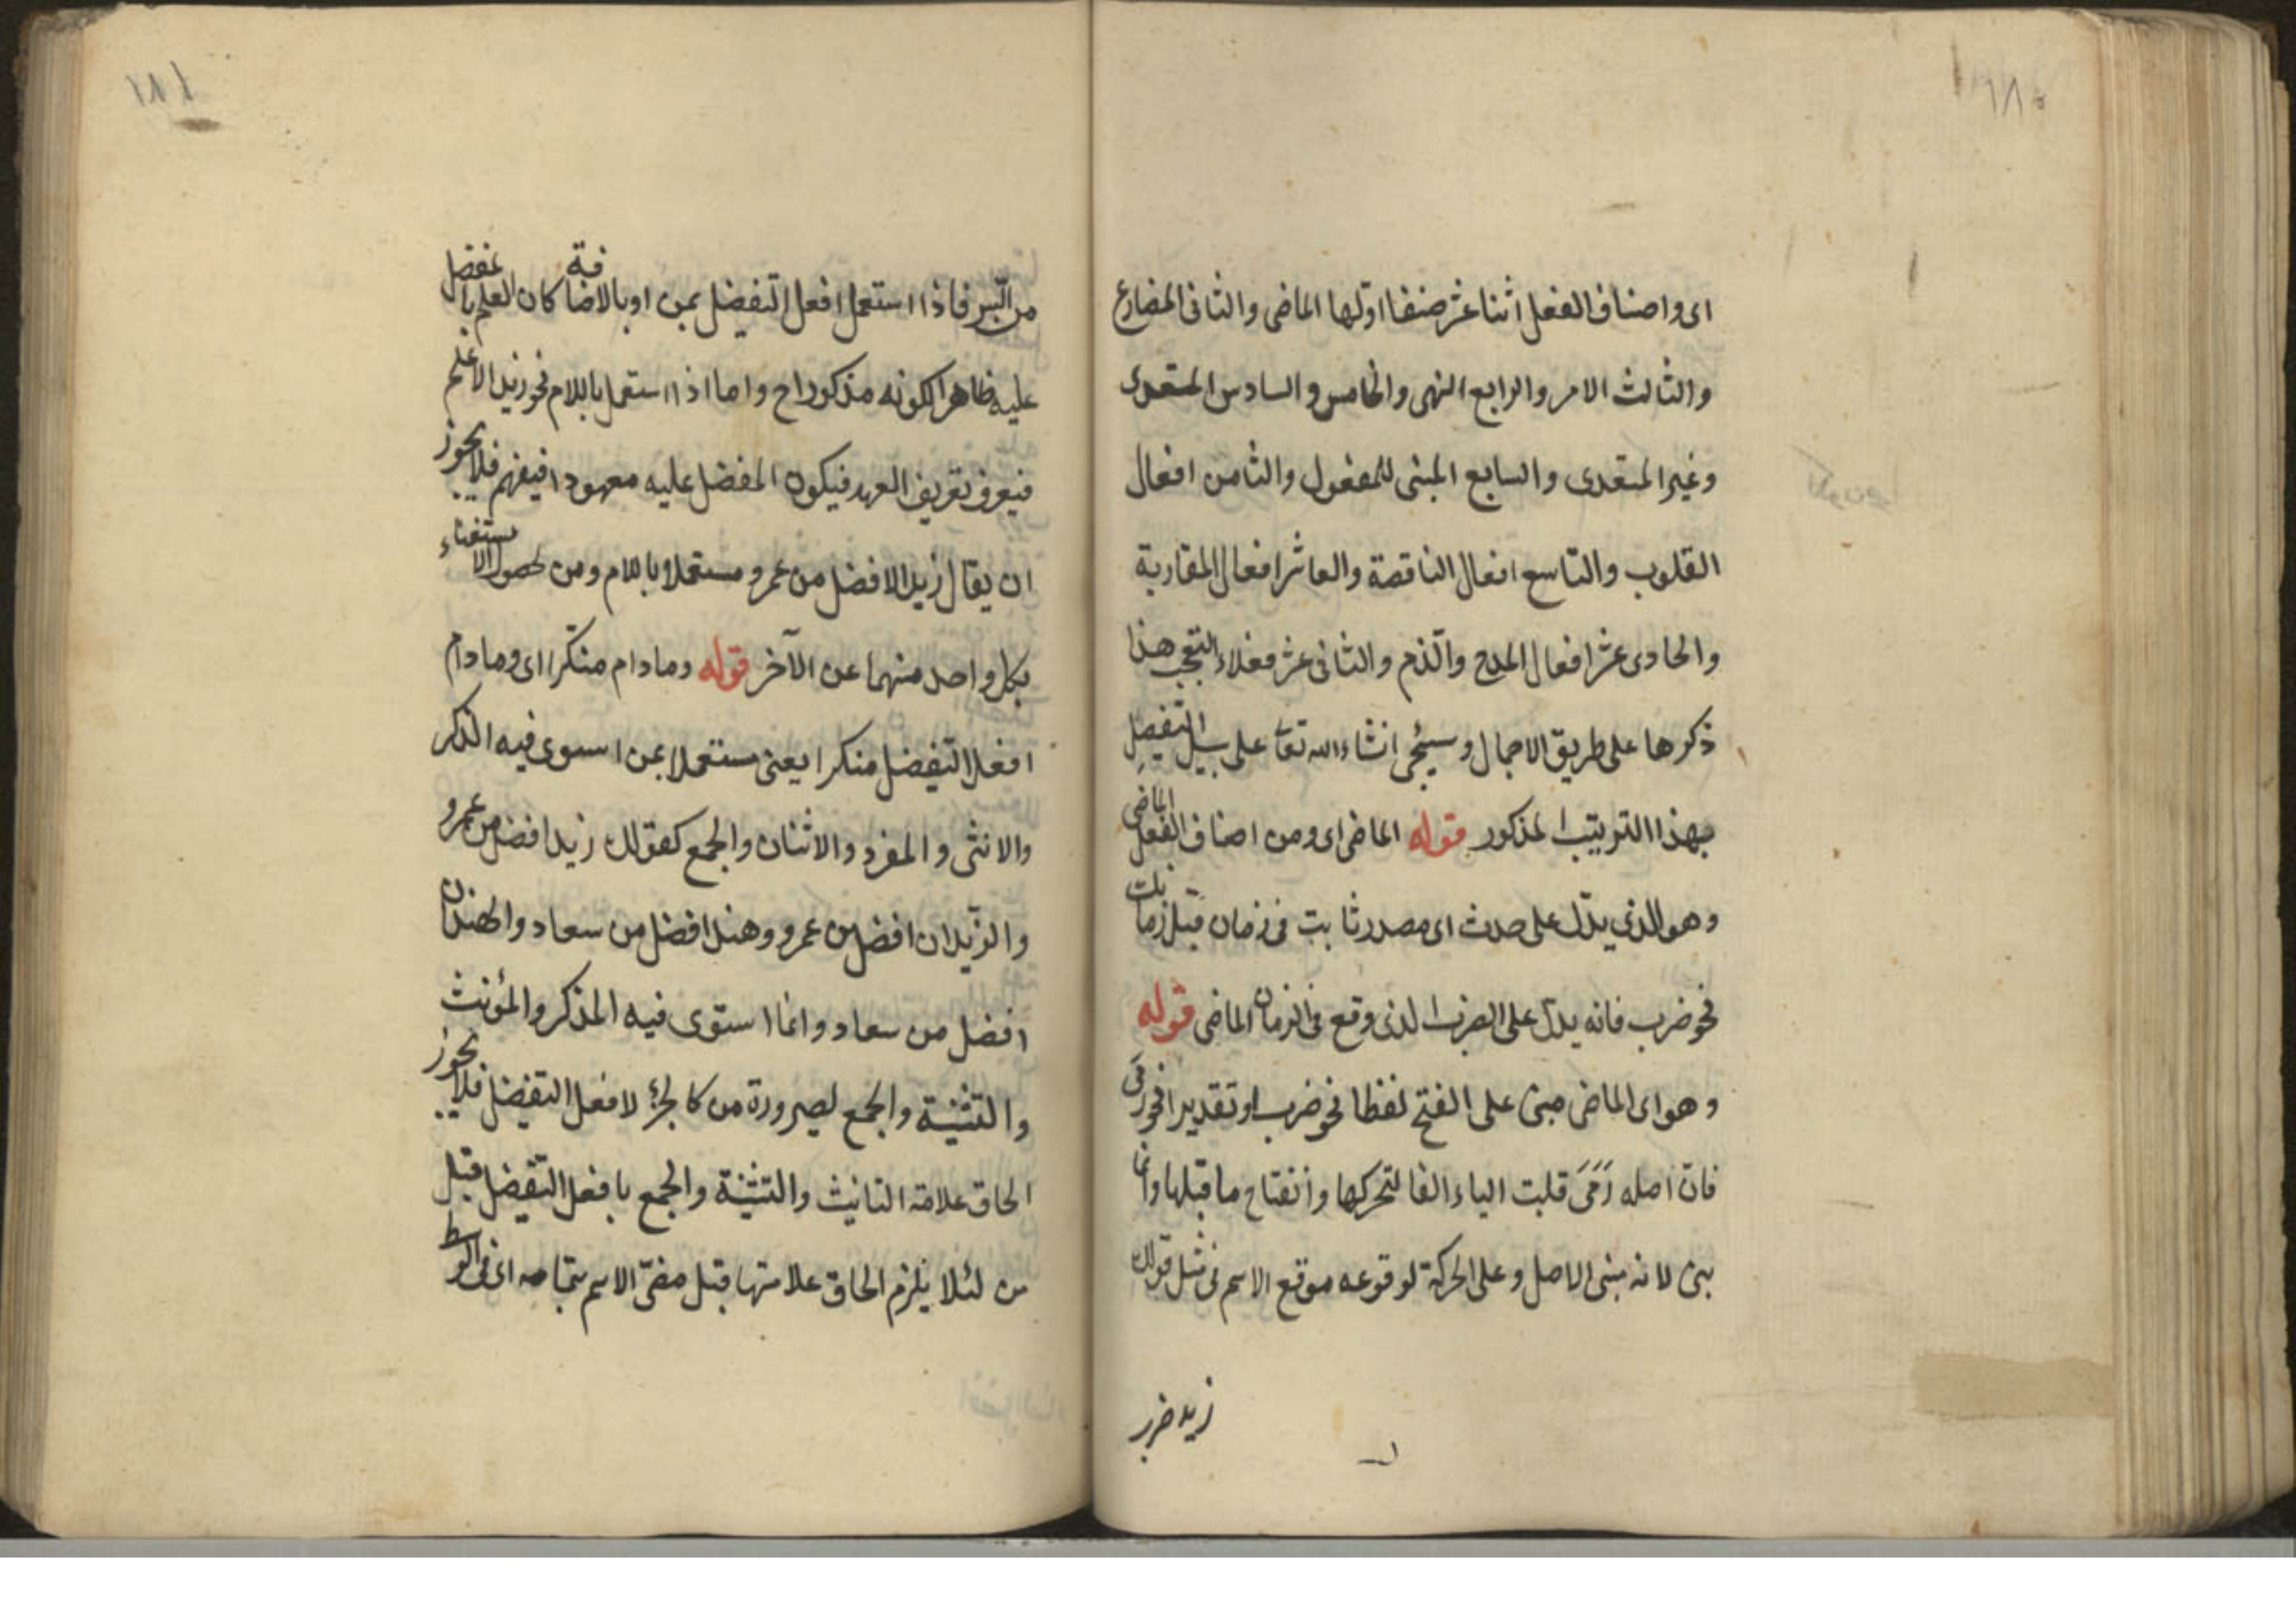 ١٨٠
اى واصناف الفعل اثنا عشر صنفا اوّلها الماضى والثانى المضارع
والثالث الامر والرابع النهى والخامس والسادس المتعدى
وغير المتعدى والسابع المبنى للمفعول والثامن افعال
القلوب والتاسع افعال الناقصة والعاشر افعال المقاربة
والحادى عشر افعال المدح والذّم والثانى عشر فعلاء التعجب هذا
ذكرها على طريق الاجمال وسيئجى انشاء الله تعا على سبيل التفصيل
بهذا الترتيب المذكور قوله الماضى اى ومن اصناف الفعل الماضى
وهو الذى يدّل على حدث اى مصدر ثابت فى زمان قبل زمانك
نحو ضرب فانه يدّل على الضرب الذى وقع فى الزمان الماضى قوله
وهو اى الماضى مبنى على الفتح لفظا نحو ضرب او تقديرا نحو رمى
فانّ اصله رَمَىَ قلبت الياء الفا لتحركها وانفتاح ما قبلها وانما
بنى لانه مبنى الاصل وعلى الحركة لوقوعه موقع الاسم فى مثل قولك
زيد ضرب
١٨١
من اللّبس فاذا استعمل افعل التفضيل بمن او بالاضافة كان العلم بالمفضل
عليه ظاهرا لكونه مذكورا ح واما اذا استعمل باللام نحو زيد الاعلم
فيعرف تعريف العهد فيكون المفضل عليه معهودا فيفهم فلا يجوز
ان يقال زيد الافضل من عمرو مستعملا باللام ومن لحصول الاستغناء
بكل واحد منهما عن الآخر قوله وما دام منكّرا اى وما دام
افعل التّفضيل منكرا يعنى مستعملا بمن استوى فيه الذكر
والانثى والمفرد والاثنان والجمع كقولك زيد افضل من عمرو
والزّيدان افضل من عمرو وهند افضل من سعاد والهندان
افضل من سعاد وانما استوى فيه المذكر والمؤنث
والتثنية والجمع لصيرورة من كالجزء لافعل التفضيل فلا يجوز
الحاق علامة التانيث والتثنية والجمع بافعل التّفضيل قبل
من لئلا يلزم الحاق علامتها قبل مضىّ الاسم بتمامه اى فى الوسط